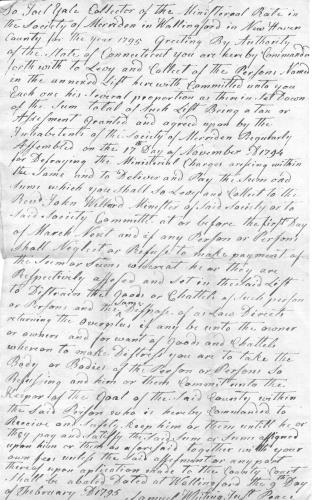 To Joel Yale Collector of the Ministereal Rate in
the Society of Merriden in Wallingford in New Haven
County for the year 1794 Greeting By Authority
of the State of Connecticut you are hereby Commanded
forthwith to Levy and Collect of the Persons Named
in the annexed List herewith Committed unto you
Each one his Several proportion as therein Set Down
of the Sum total of Such List Being a tax or
Assesment Granted and agreed upon by the
Inhabetents of the Society of Merriden Regularly
Assembled on the 17th Day of November D 1794
for Defraying the Ministerial Charges arising within
the Same and to Deliver and Pay the Sum and
Sums which you Shall So Levy and Collect to the
Revd. John Willard Minester of Said Society or to
Said Society Committee at or before the first Day
of March Next and if any Person or Persons
Shall Neglect or Refuse to make payment of
the Sum or Sums whereat he or they are
Respectively assesed and Set in the Said List
to Distrain the Goods or Chattels of Such person
or Persons and the Same Dispose of as Law Directs
returning the overplus if any be unto the owner
or owners and for want of Goods and Chattels
whereon to make Distress you are to take the
Body or Bodies of the Person or Persons So
Refusing and him or them Committ unto the
Keeper of the Goal of the Said County within
the Said Prison who is hereby Commanded to
Receive and Safely keep him or them untill he or
they pay and Satisfy the Said Sum or Sums assesed
upon him or them as aforesaid together with your
own fees unless the Said Assesment or any part
thereof upon application made to the County Court
Shall be abated Dated at Wallingford the 9th Day
of February D 1795
Samuel Whiting Just Peace